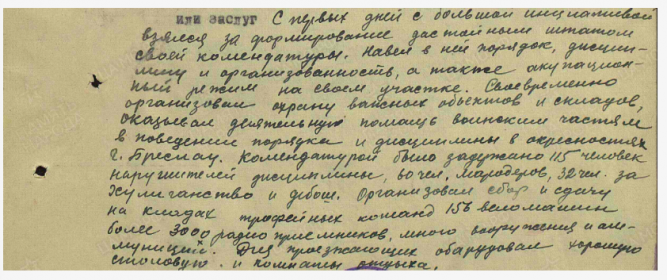 или заслуг С первых дней с большой инициативой
взялся за формирование достойным штатом
своей комендатуры. Навел в ней порядок, дисцип-
лину и организованность, а также акупацион-
ный режим на своем участке. Своевременно
организовал охрану важных объектов и складов,
оказывал деятельную помощь воинским частям
в поведении порядка и дисциплины в окрестностях
г. Бреслау. Комендатурой было задержано 115 человек
нарушителей дисциплины, 60 чел. мародеров, 32 чел. за
хулиганство и дебош. Организовал сбор и сдачу
на складах трофейных команд 156 веломашин
более 3000 радио приемников, много вооружения и ам-
муниций. Для проезжающих оборудовал хорошую
столовую и комнаты отдыха.